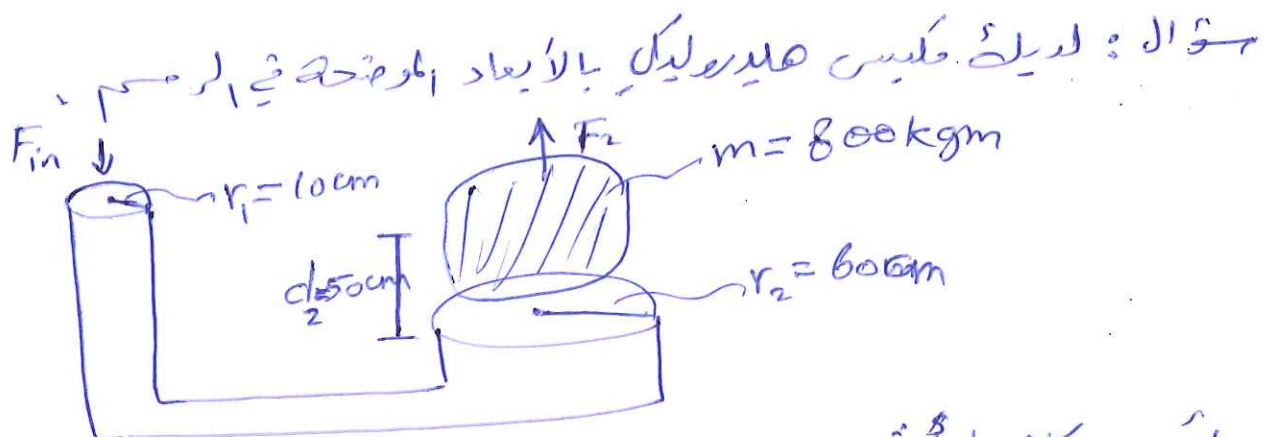 سؤال : لديك مكبس هيدروليكي بالأبعاد الموضحة في الرسم .
Fin
F2
m = 800 kgm
r1 = 10 cm
d2=50cm
r2 = 60cm